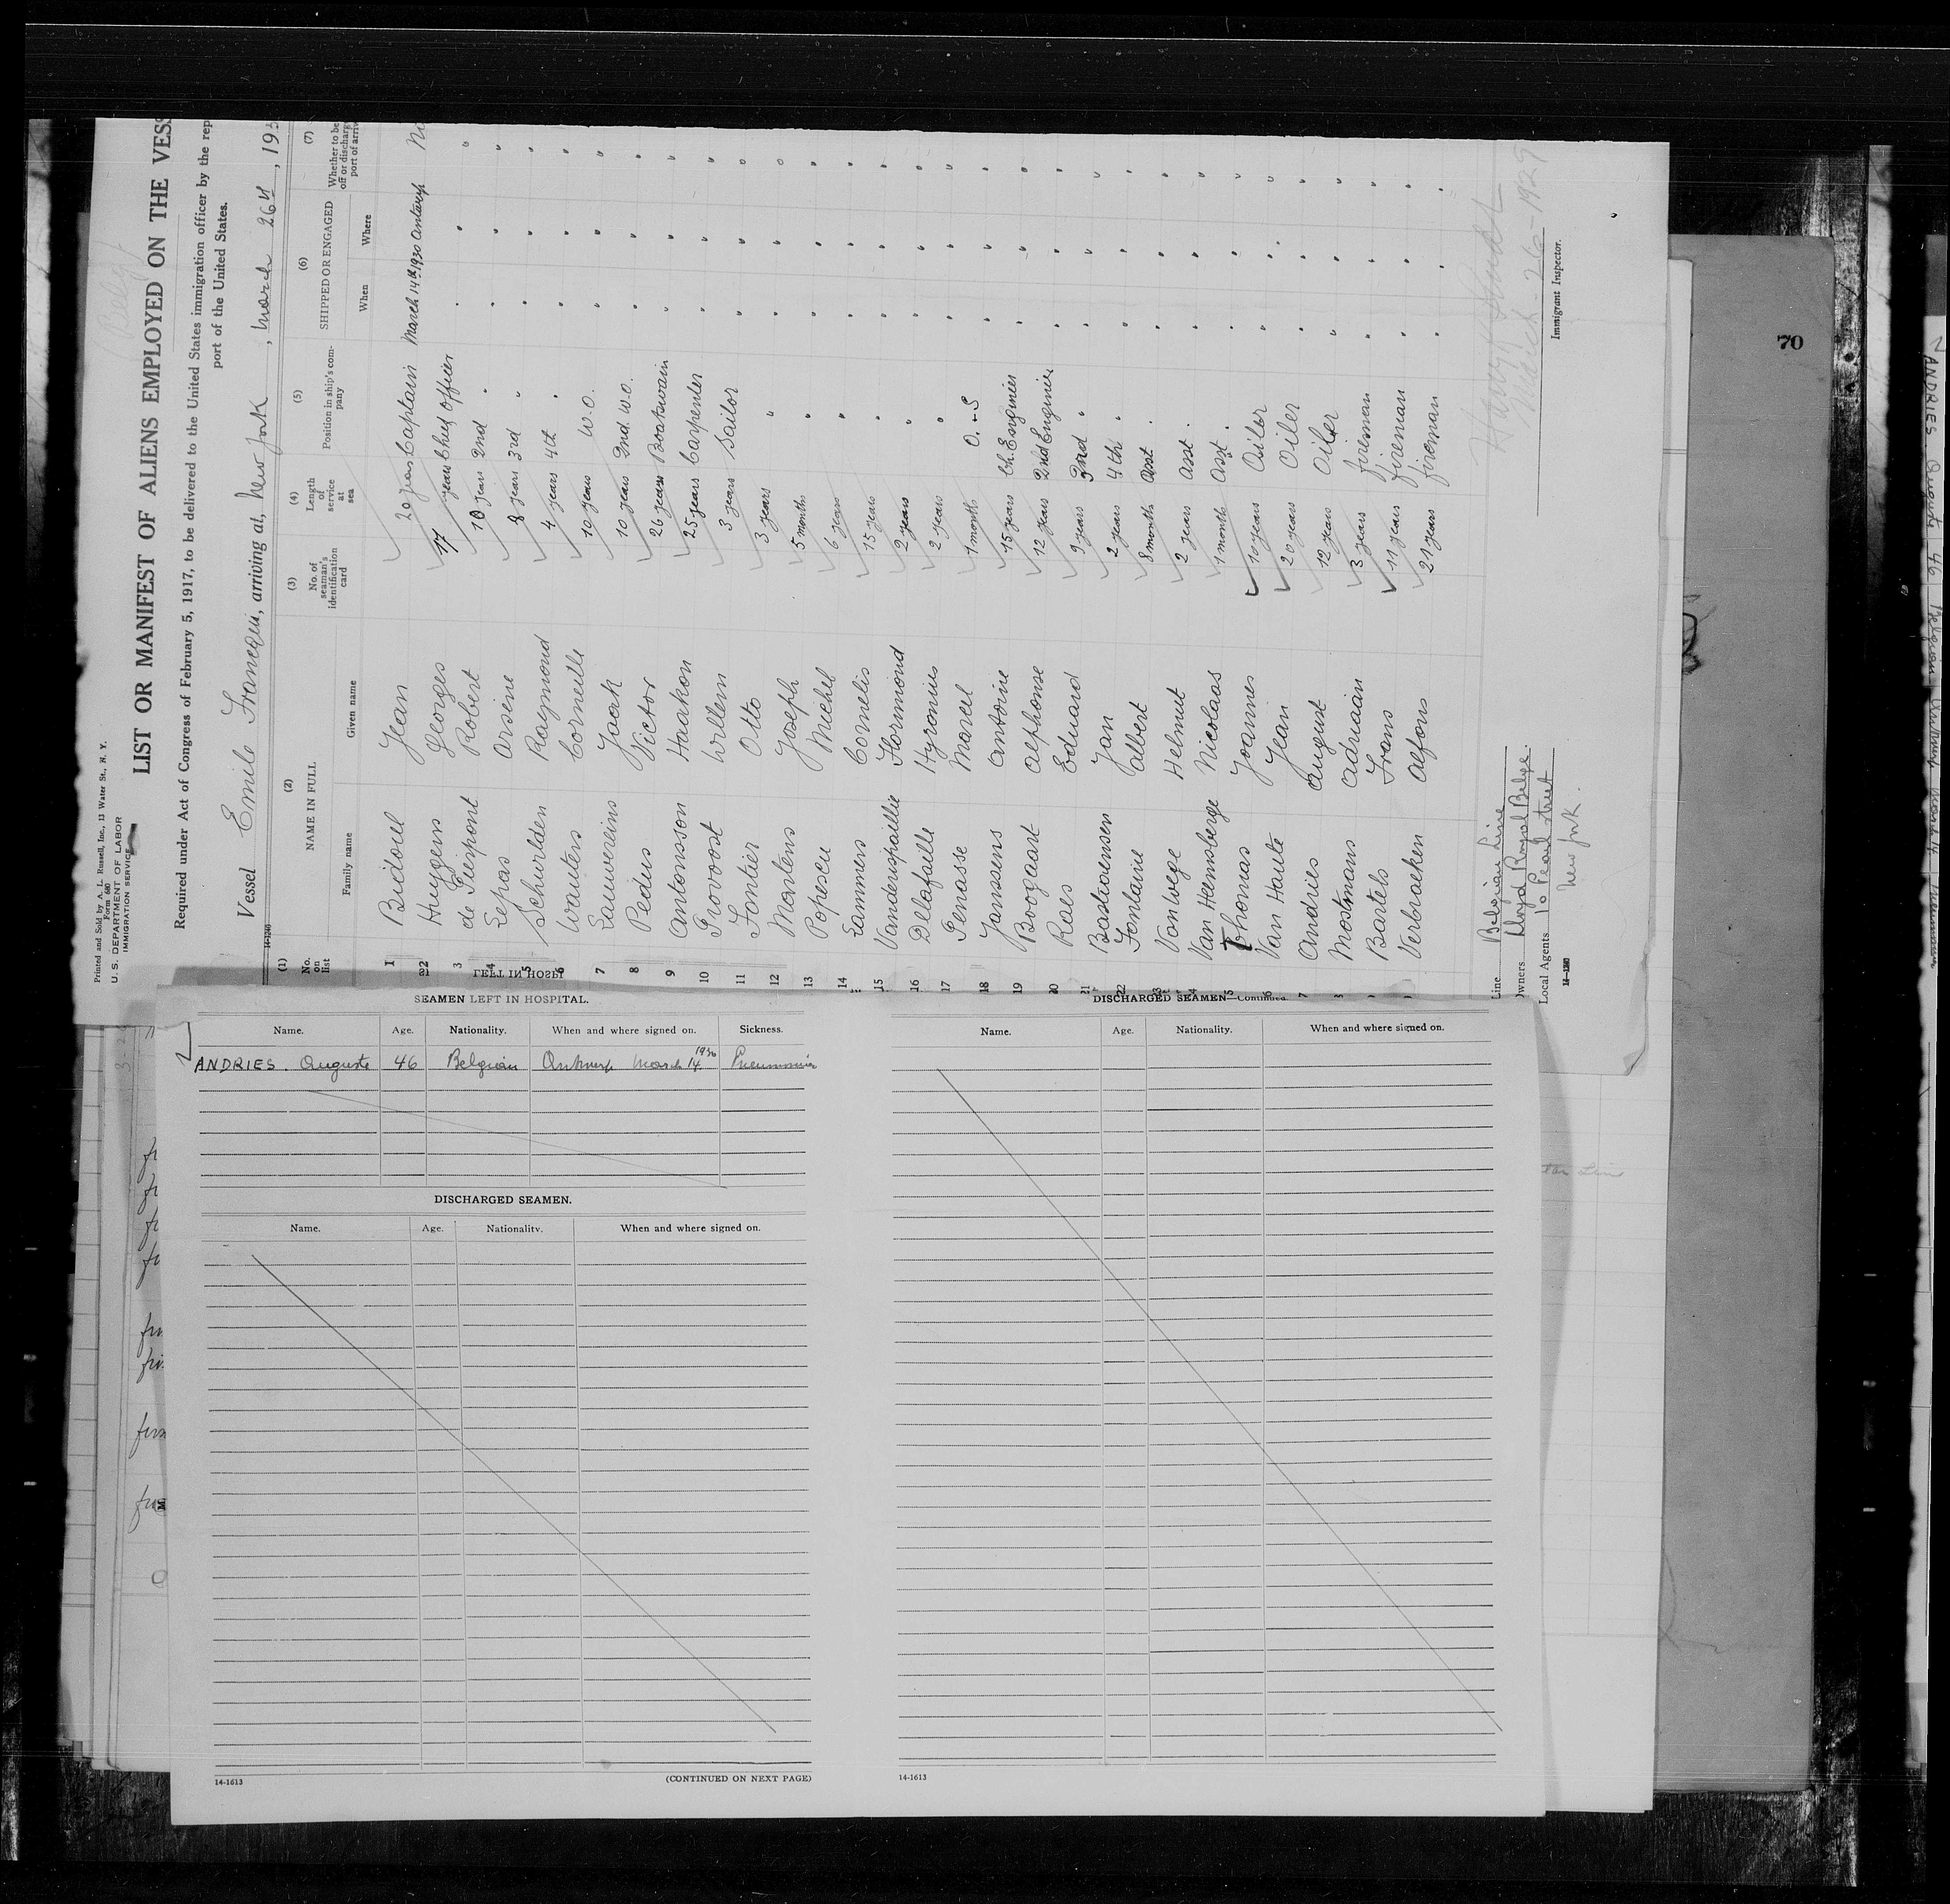 Printed and Sold by A. L. Russell, Inc., 13 Water St., N. Y.
Form 680
U. S. DEPARTMENT OF LABOR
IMMIGRATION SERVICE
LIST OR MANIFEST OF ALIENS EMPLOYED ON THE VESS
Required under Act of Congress of February 5, 1917, to be delivered to the United States immigration officer by the rep
port of the United States.
Vessel Emile Francqui, arriving at, New York, March 26th, 193
14-1240
(1) (2) (3) (4) (5) (6) (7)
No. on list
NAME IN FULL
Family name Given name
No. of seaman's identification card
Length of service at sea
Position in ship's company
SHIPPED OR ENGAGED
When Where
Whether to be
off or discharg
port of arriv
1 Bidoul Jean 20 years Captain March 14th 1930 Antwerp No
2 Huygens Georges 17 years Chief Officer " " "
3 de Pierpont Robert 10 years 2nd " " " "
4 Lepas Arsine 8 years 3rd " " " "
5 Schurlden Raymond 4 years 4th " " " "
6 Wauters Corneille 10 years W.O. " " "
7 Lauwereins Jaak 10 years 2nd W.O. " " "
8 Pedus Victor 26 years Boatswain " " "
9 Antonsson Haakon 25 years Carpenter " " "
10 Provoost Willem 3 years Sailor " " "
11 Fontier Otto 3 years " " " "
12 Mortens Joseph 5 months " " " "
13 Popescu Michel 6 years " " " "
14 Lammers Cornelis 15 years " " " "
15 Vanderispaillie Flormond 2 years " " " "
16 Dellafaille Hyronius 2 years " " " "
17 Penasse Marcel 1 month O.-S " " "
18 Janssens Antoine 15 years Ch. Enginier " " "
19 Boogaart Alphonse 12 years 2nd Enginier " " "
20 Raes Eduard 9 years 3rd " " " "
21 Bastiaensen Jan 2 years 4th " " " "
22 Fontaine Albert 8 months Asst. " " "
23 Vonwege Helmut 2 years Asst. " " "
24 Van Heensberge Nicolaas 1 month Asst. " " "
5 Thomas Joannes 10 years Oiler " " "
6 Van Haute Jean 20 years Oiler " " "
7 Andries August 12 years Oiler " " "
8 Mostmans Adriaan 3 years fireman " " "
Bartels Frans 11 years fireman " " "
Verbraeken Alfons 21 years fireman " " "
Line Belgian Line
Owners Lloyd Royal Belge.
Local Agents 10 Pearl Street
New York.
14-1240
March-26-1929
Immigrant Inspector.
70
LEFT IN HOSPI
SEAMEN LEFT IN HOSPITAL.
Name. Age. Nationality. When and where signed on. Sickness.
ANDRIES. Auguste 46 Belgian Antwerp March 14 1930 Pneumonia
DISCHARGED SEAMEN.
Name. Age. Nationality. When and where signed on.
14-1613
(CONTINUED ON NEXT PAGE)
DISCHARGED SEAMEN—Continued
Name. Age. Nationality. When and where signed on.
14-1613
ANDRIES Auguste 46 Belgian Antwerp March 14